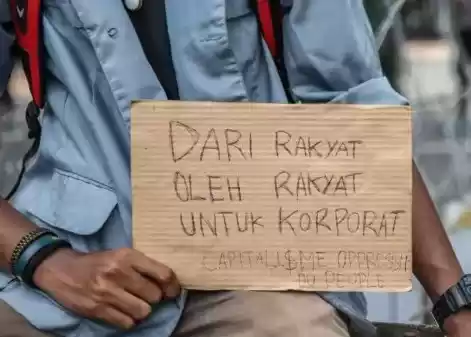 DARI RAKYAT
OLEH RAKYAT
UNTUK KORPORAT
CAPITALI$ME
PEOPLE